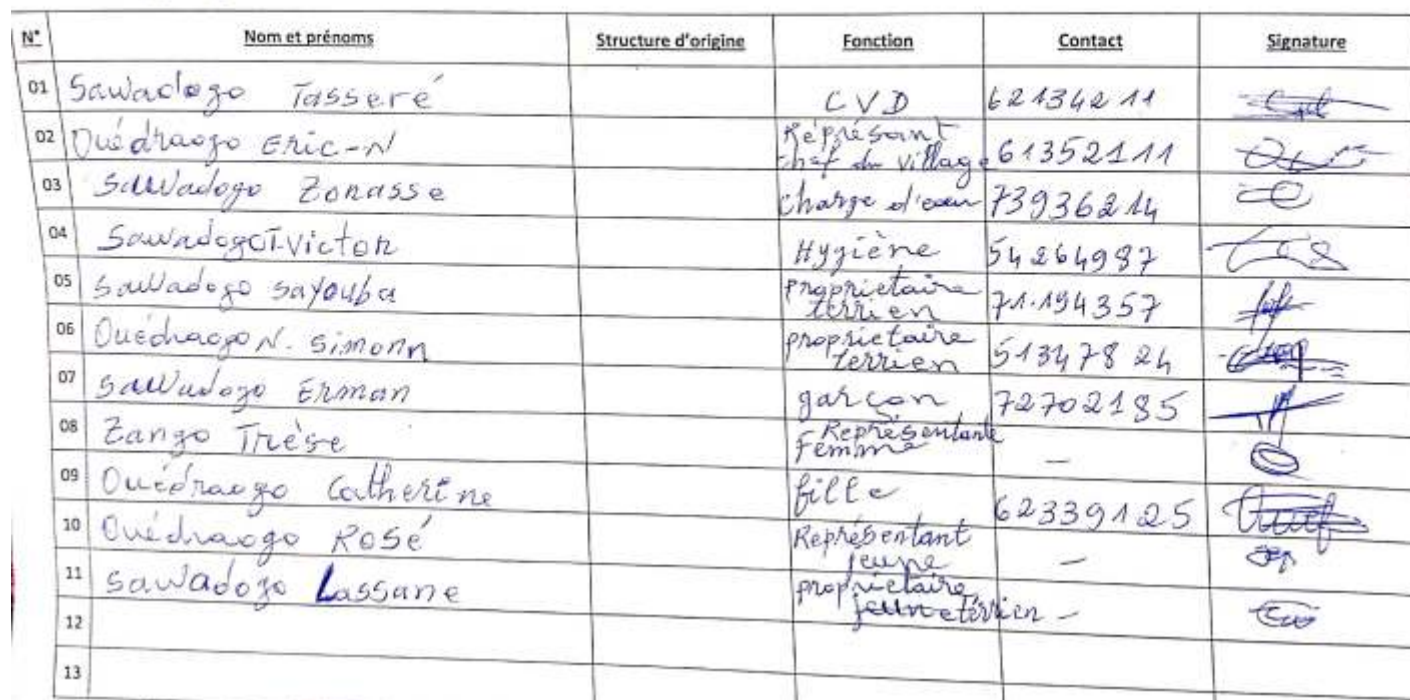 N° Nom et prénoms Structure d'origine Fonction Contact Signature
01 Sawadogo Tasseré CVD 62134211
02 Ouédraogo Eric-N Réprésant chef du village 61352111
03 Sawadogo Zonasse charge d'eau 73936214
04 Sawadogo T Victor Hygiène 54264987
05 Sawadogo Sayouba proprietaire terrien 71.194357
06 Ouédraogo N. Simonn proprietaire terrien 51347824
07 Sawadogo Erman garçon 72702185
08 Zango Trèse Représentante Femme -
09 Ouédraogo Catherine fille 62339125
10 Ouédraogo Rosé Représentant jeune -
11 Sawadogo Lassane proprietaire jeune terrien -
12
13